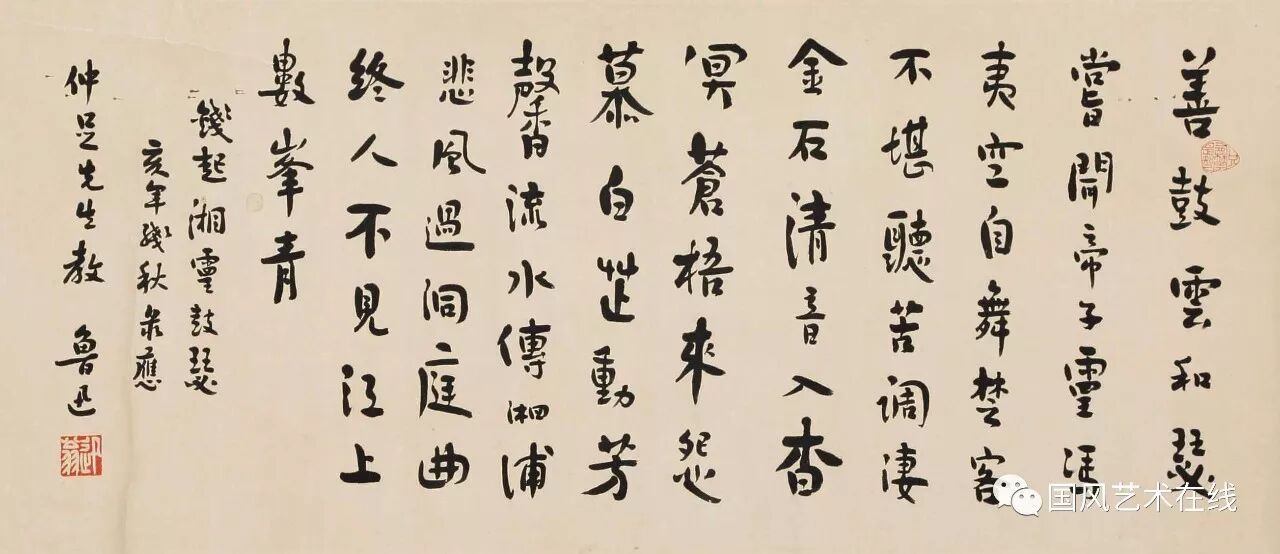 善鼓雲和瑟
嘗聞帝子靈馮
夷空自舞楚客
不堪聽苦調淒
金石清音入杳
冥蒼梧來怨
慕白芷動芳
馨流水傳湘浦
悲風過洞庭曲
終人不見江上
數峯青
錢起湘靈鼓瑟
亥年殘秋录應
仲足先生教 魯迅
迅翁
国风艺术在线